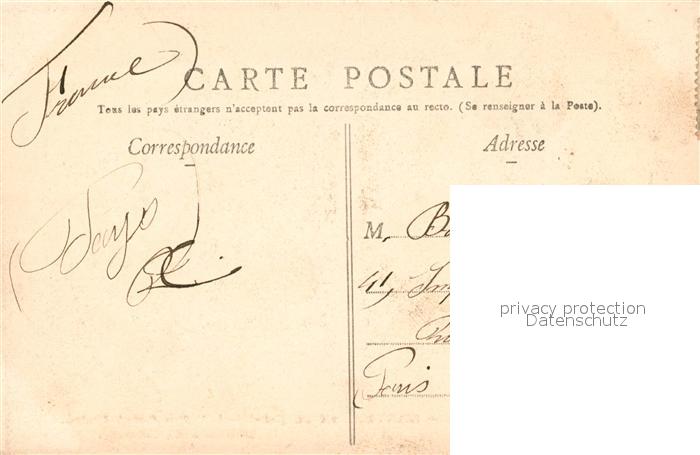 France
CARTE POSTALE
Tous les pays étrangers n'acceptent pas la correspondance au recto. (Se renseigner à la Poste).
Correspondance
Adresse
M,
41,
Paris
privacy protection
Datenschutz